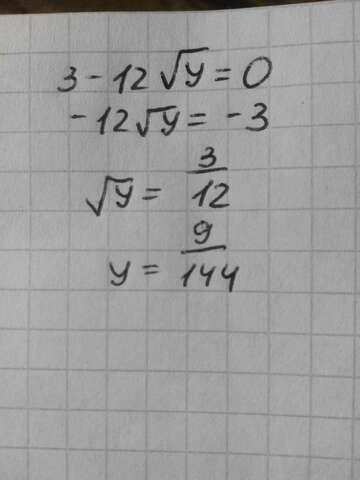 3 - 12 √y = 0
- 12 √y = - 3
√y = 3/12
y = 9/144